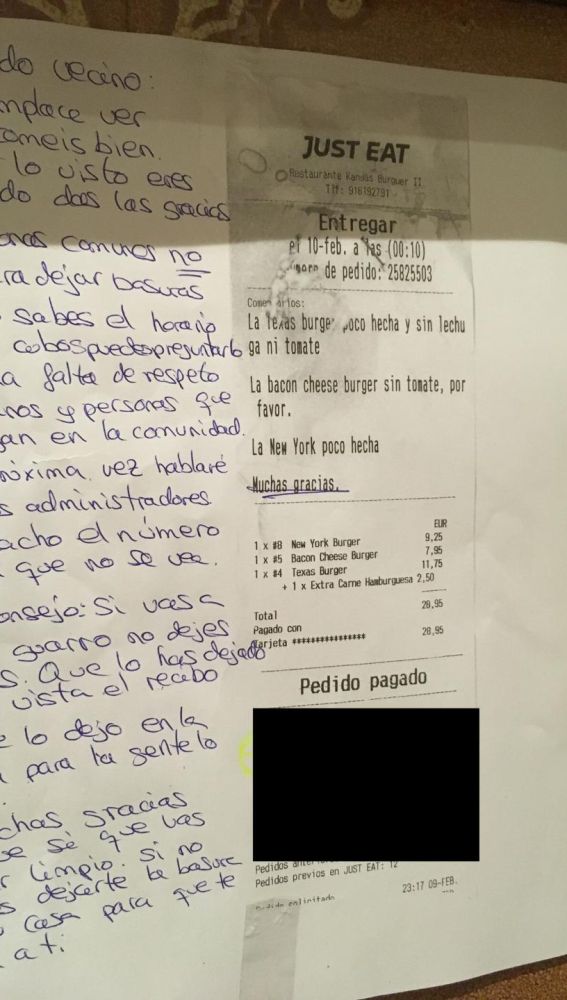 do vecino:
mplace ver
comeis bien.
lo visto eres
do das las gracias
onas comunes no
ra dejar basuras
sabes el horario
cobos puedes preguntarlo
a falta de respeto
nos y personas que
an en la comunidad.
róxima vez hablaré
s administradores
acho el número
que no se vea.
onsejo: Si vas a
guarro no dejes
s. Que lo has dejado
vista el recibo
e lo dejo en la
para la gente lo
chas gracias
se sé que vas
r limpio. si no
s dejarte la basura
casa para que te
a ti
JUST EAT
Restaurante Kandas Burguer II
Tlf: 916192791
Entregar
el 10-feb. a las (00:10)
de pedido: 25825503
Comentarios:
La Texas burger poco hecha y sin lechu
ga ni tomate
La bacon cheese burger sin tomate, por
favor.
La New York poco hecha
Muchas gracias.
EUR
1 x #8 New York Burger 9,25
1 x #5 Bacon Cheese Burger 7,95
1 x #4 Texas Burger 11,75
+ 1 x Extra Carne Hamburguesa 2,50
Total 28,95
Pagado con
Tarjeta **************** 28,95
Pedido pagado
Pedidos
Pedidos previos en JUST EAT: 12
23:17 09-FEB.